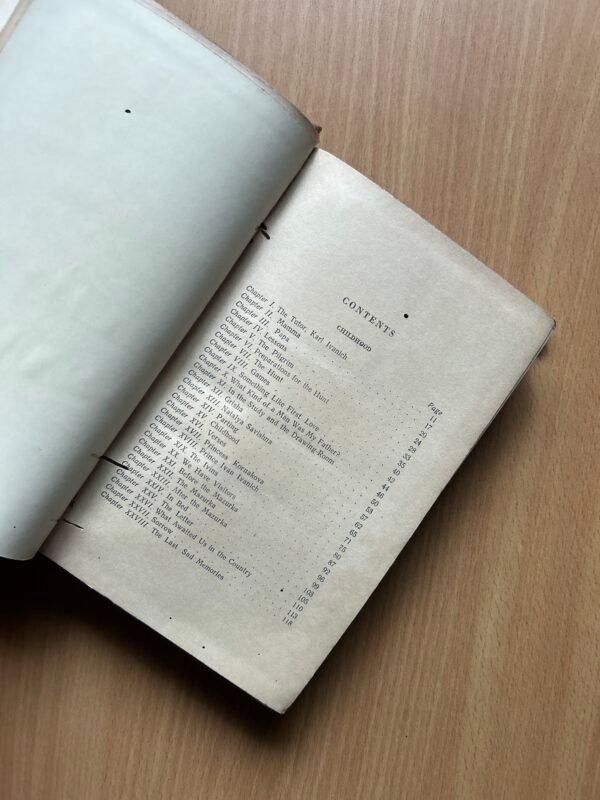 CONTENTS
CHILDHOOD
Page
Chapter I. The Tutor, Karl Ivanich 11
Chapter II. Mamma 17
Chapter III. Papa 20
Chapter IV Lessons 24
Chapter V. The Pilgrim 28
Chapter VI. Preparations for the Hunt 33
Chapter VII. The Hunt 35
Chapter VIII. Games 40
Chapter IX. Something Like First Love 42
Chapter X. What Kind of a Man Was My Father? 44
Chapter XI. In the Study and the Drawing-Room 46
Chapter XII. Grisha 50
Chapter XIII. Natalya Savishna 53
Chapter XIV. Parting 57
Chapter XV. Childhood 62
Chapter XVI. Verses 65
Chapter XVII. Princess Kornakova 71
Chapter XVIII. Prince Ivan Ivanich 75
Chapter XIX. The Ivins 80
Chapter XX. We Have Visitors 87
Chapter XXI. Before the Mazurka 92
Chapter XXII. The Mazurka 96
Chapter XXIII. After the Mazurka 99
Chapter XXIV. In Bed 103
Chapter XXV. The Letter 105
Chapter XXVI. What Awaited Us in the Country 110
Chapter XXVII. Sorrow 113
Chapter XXVIII. The Last Sad Memories 118